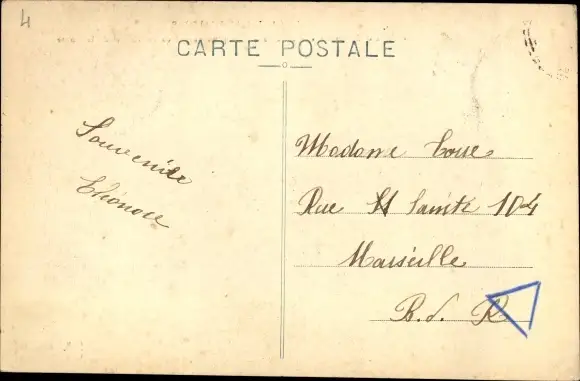 4
CARTE POSTALE
Souvenir
Madame
Rue St Sainte 104
Marseille
B.d. R